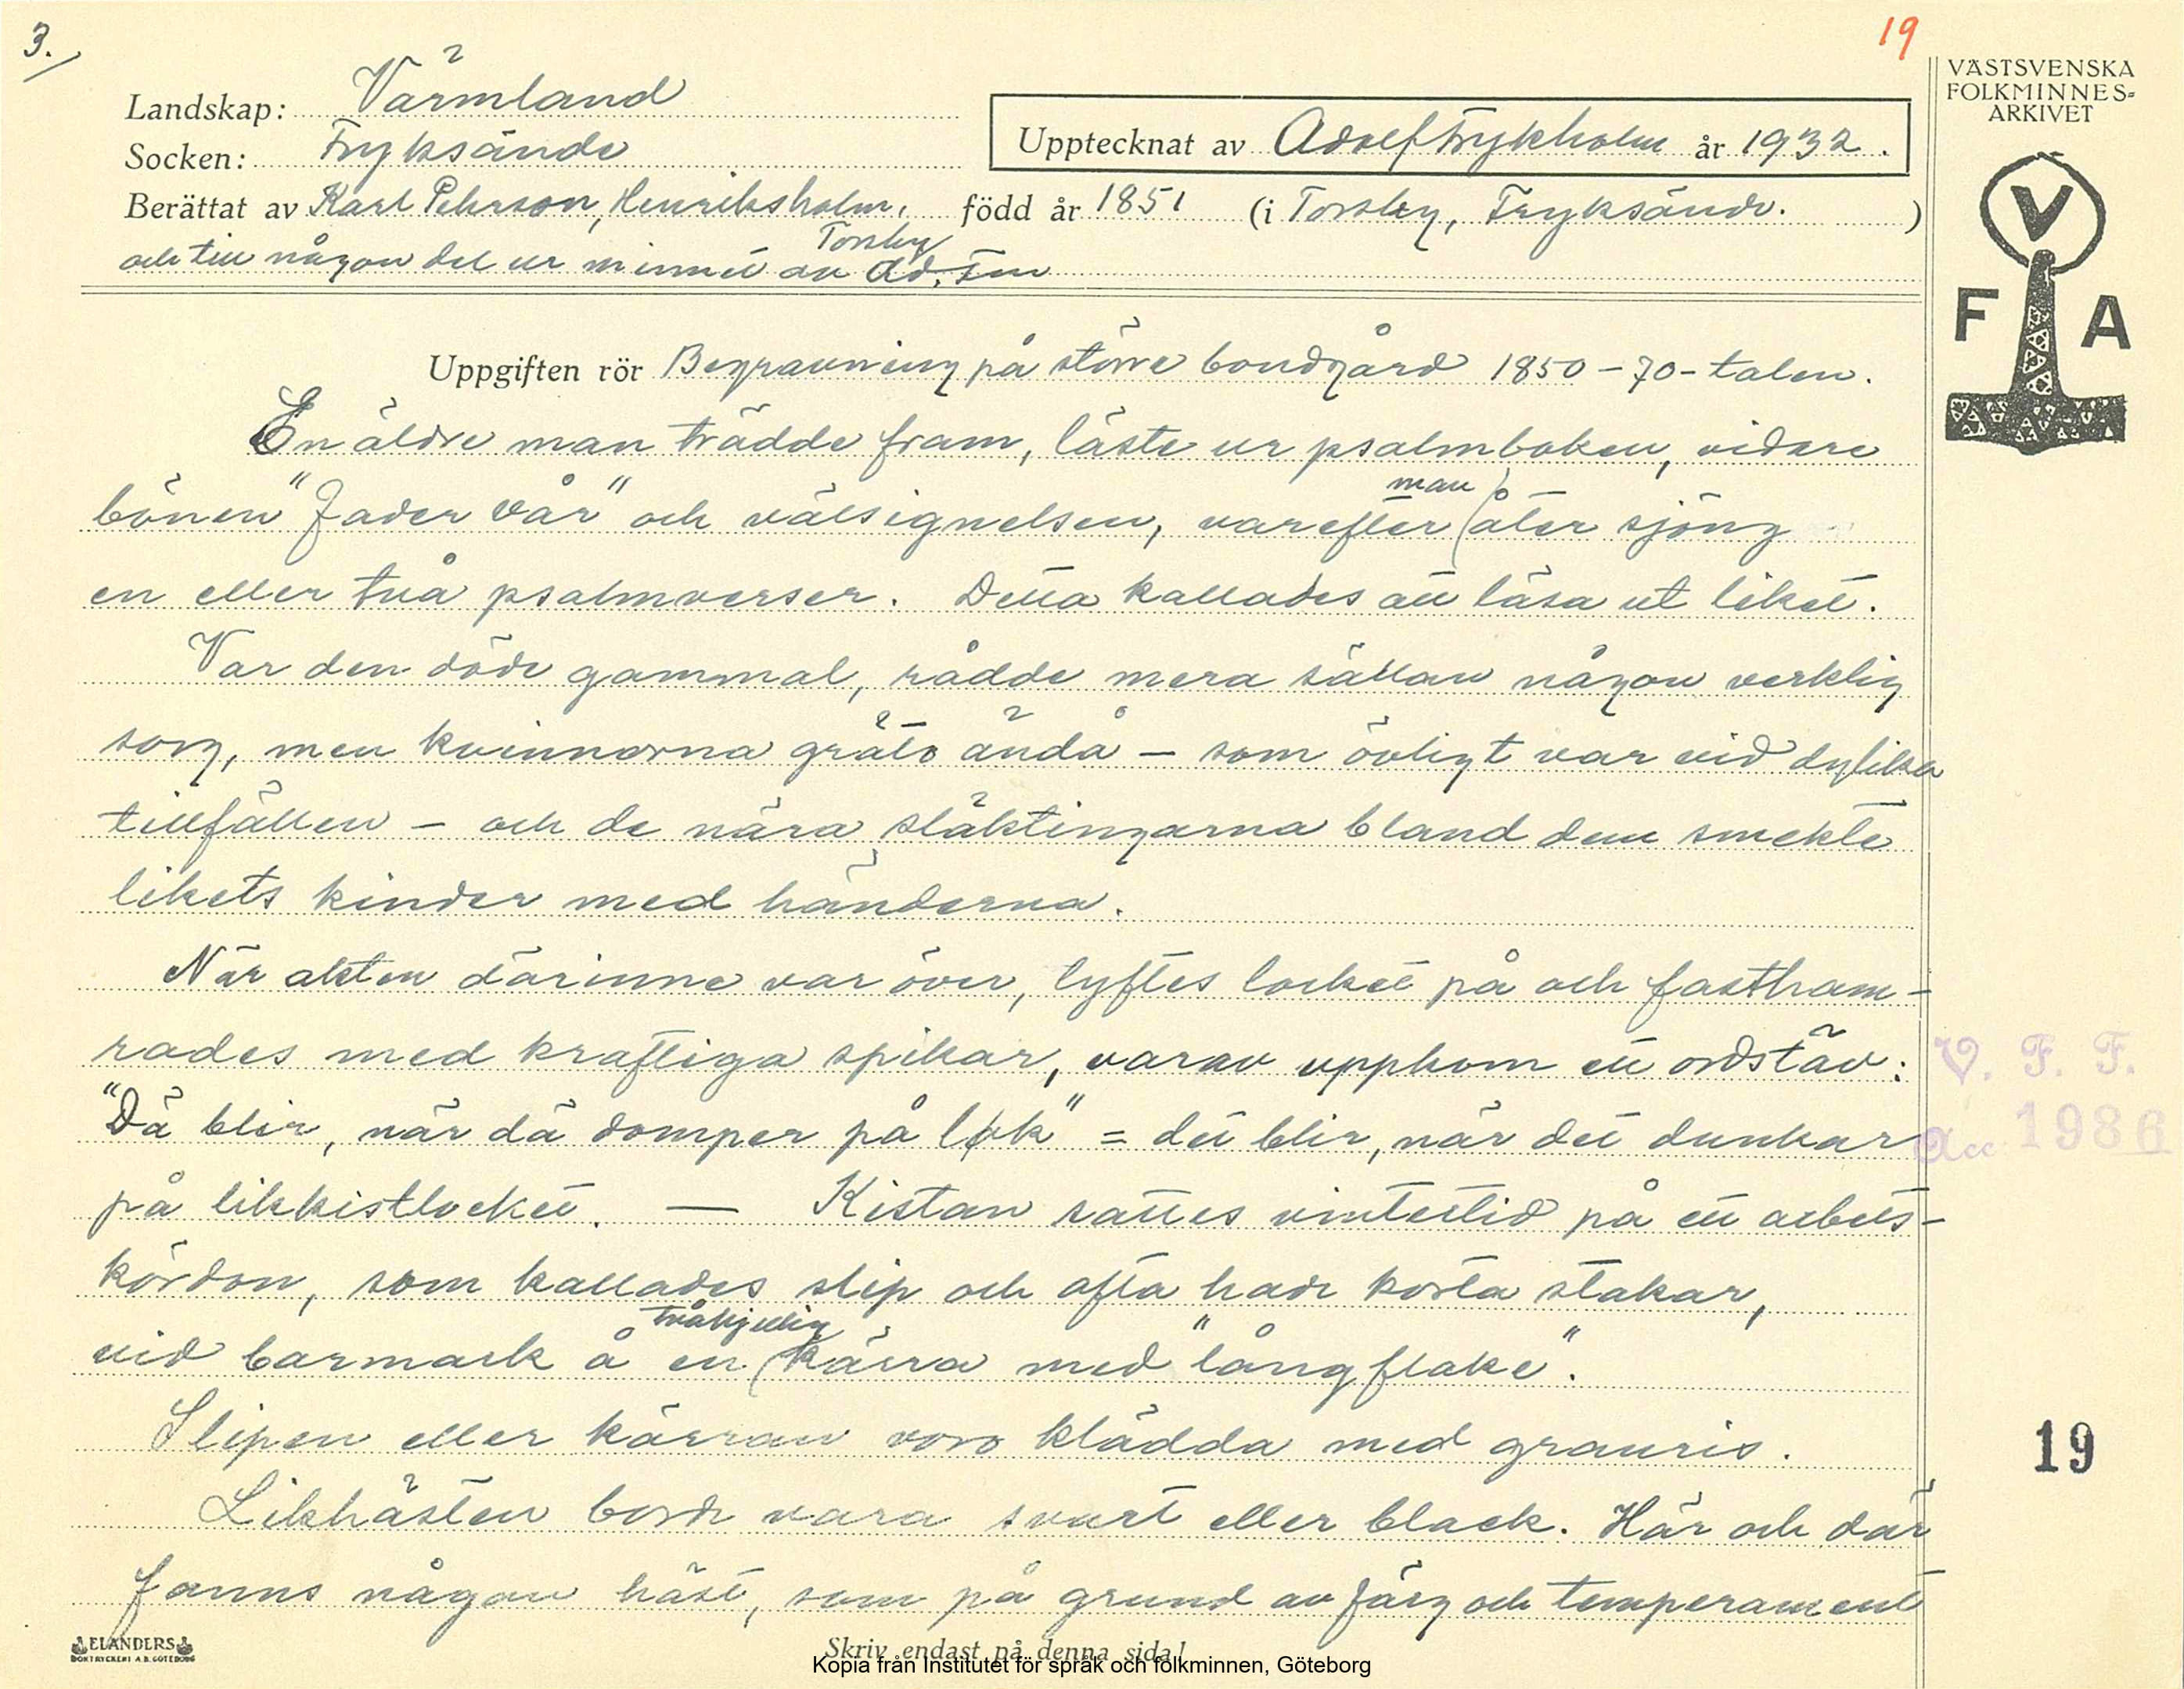 3.
19
VÄSTSVENSKA
FOLKMINNES=
ARKIVET
Landskap: Värmland
Socken: Fryksände
Upptecknat av Adolf Frykholm år 1932.
Berättat av Karl Pehrson, Henriksholm, född år 1851 (i Torsby, Fryksände. )
Torsby
och till någon del ur minnet av Ad. Fm
V
F A
Uppgiften rör Begravning på större bondgård 1850-70-talen.
En äldre man trädde fram, läste ur psalmboken, vidare
man
bönen "Fader vår" och välsignelsen, varefter åter sjöng
en eller två psalmverser. Detta kallades att läsa ut liket.
Var den döde gammal, rådde mera sällan någon verklig
sorg, men kvinnorna gräto ändå - som övligt var vid dylika
tillfällen - och de nära släktingarna bland dem smekte
likets kinder med händerna.
När akten därinne var över, lyftes locket på och fastham-
rades med kraftiga spikar, varav uppkom ett ordstäv:
"Dä blir, när dä domper på lok" = det blir, när det dunkar
på likkistlocket. — Kistan sattes vintertid på ett arbets-
kördon, som kallades slip och ofta hade korta stakar,
tvåhjulig
vid barmark å en kärra med "långflake".
Slipen eller kärran voro klädda med granris.
Likhästen borde vara svart eller black. Här och där
fanns någon häst, som på grund av färg och temperament
V. F. F.
Acc 1986
19
ELANDERS
BOKTRYCKERI A.B. GÖTEBORG
Skriv endast på denna sida!
Kopia från Institutet för språk och folkminnen, Göteborg